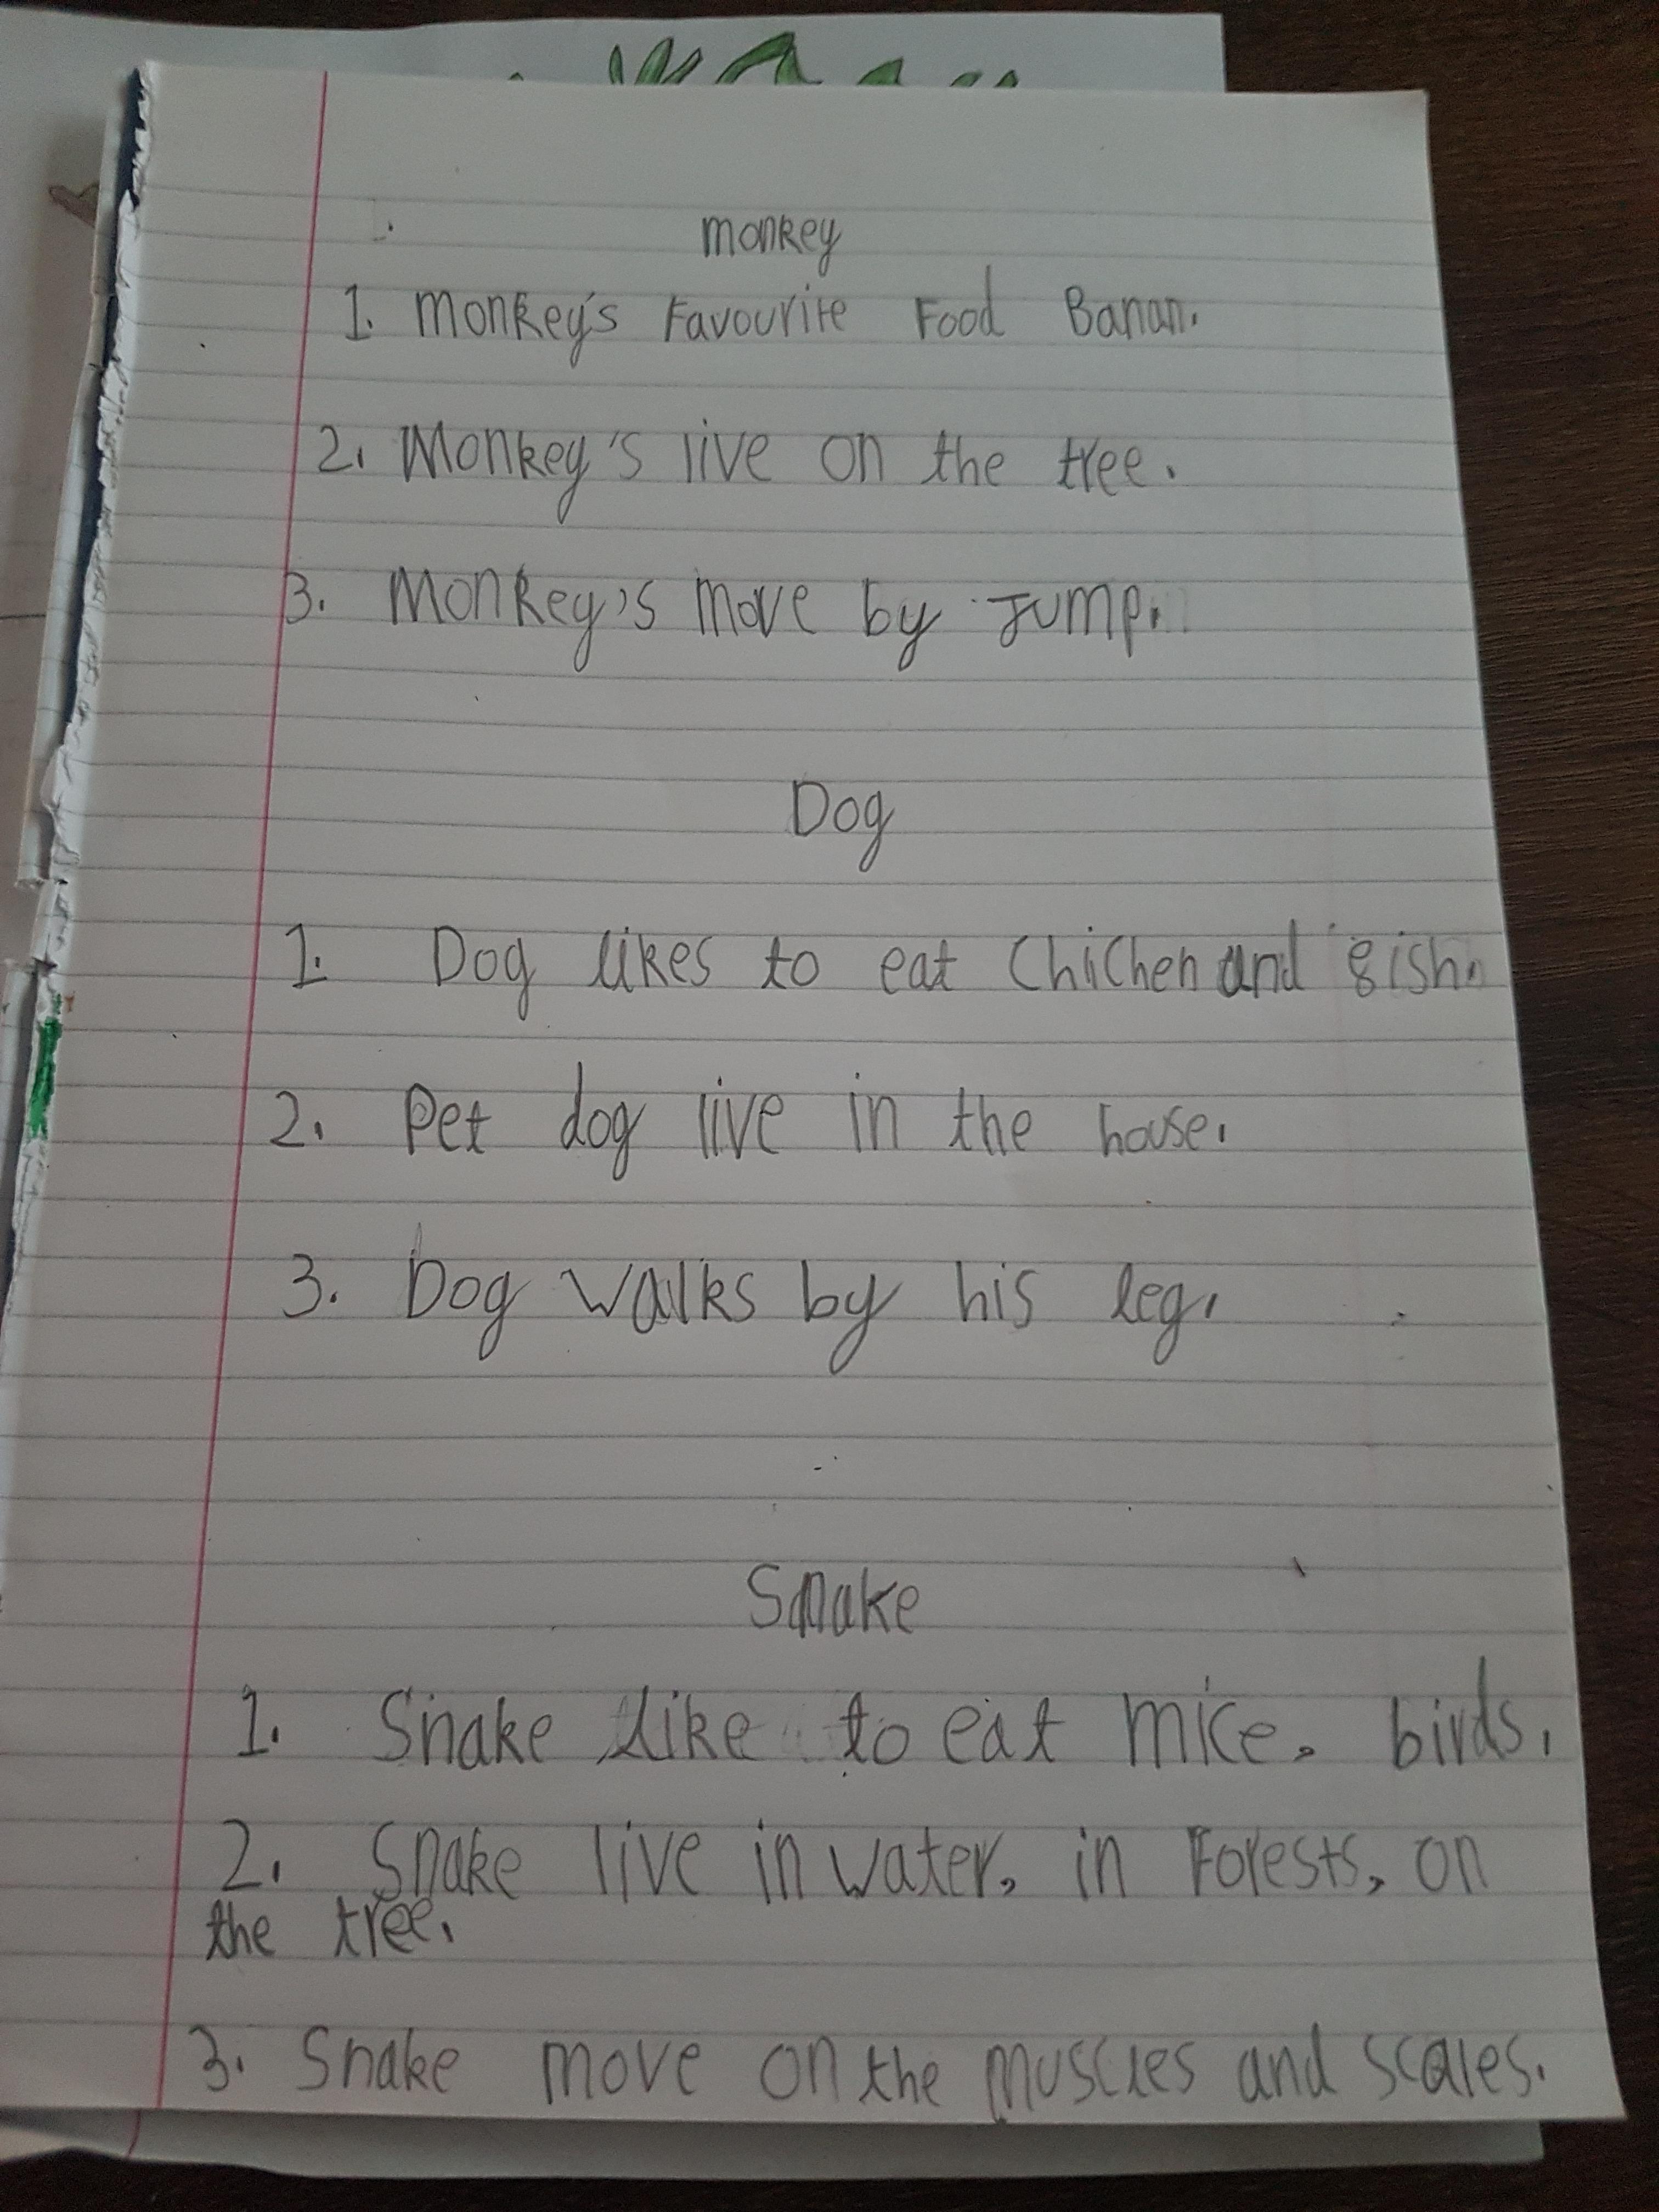 monkey
1. Monkey's Favourite Food Banan.
2. Monkey's live on the tree.
3. Monkey's move by Jump.
Dog
1. Dog likes to eat Chichen and gish.
2. Pet dog live in the house.
3. Dog walks by his leg.
Snake
1. Snake like to eat mice, birds.
2. Snake live in water, in Forests, on
the tree.
3. Snake move on the muscles and scales.